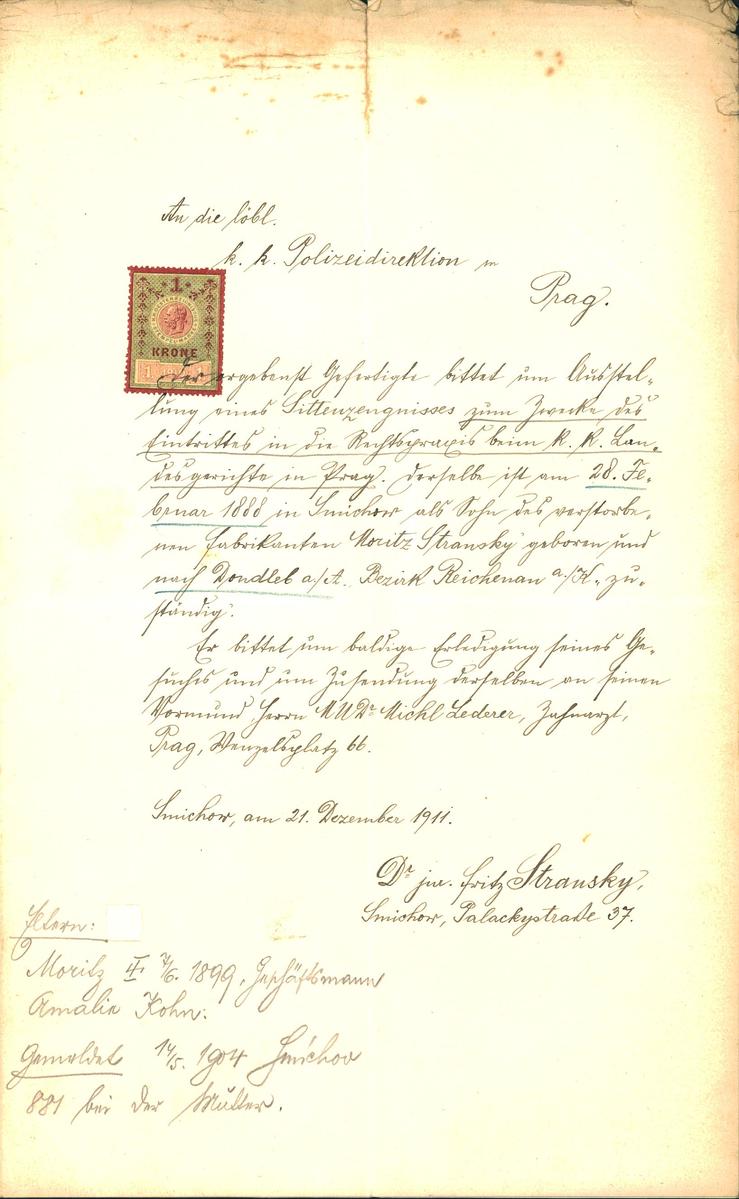 An die löbl.
k. k. Polizeidirektion in
Prag.
1
KRONE
1
Der ergebenst Gefertigte bittet um Ausstel-
lung eines Sittenzeugnisses zum Zwecke des
Eintrittes in die Rechtspraxis beim k. k. Lan-
desgerichte in Prag. Derselbe ist am 28. Fe-
bruar 1888 in Smichow als Sohn des verstorbe-
nen Fabrikanten Moritz Stransky geboren und
nach Doudleb a/A. Bezirk Reichenau a./K. zu-
ständig.
Er bittet um baldige Erledigung seines Ge-
suches und um Zusendung derselben an seinen
Vormund Herrn MUDr Michl Lederer, Zahnarzt,
Prag, Wenzelsplatz 66.
Smichow, am 21. Dezember 1911.
Dr jur. Fritz Stransky,
Smichow, Palackystraße 37.
Eltern:
Moritz 7/6. 1899, Geschäftsmann
Amalie Kohn.
Gemeldet 14/5. 1904 Smíchov
881 bei der Mutter.